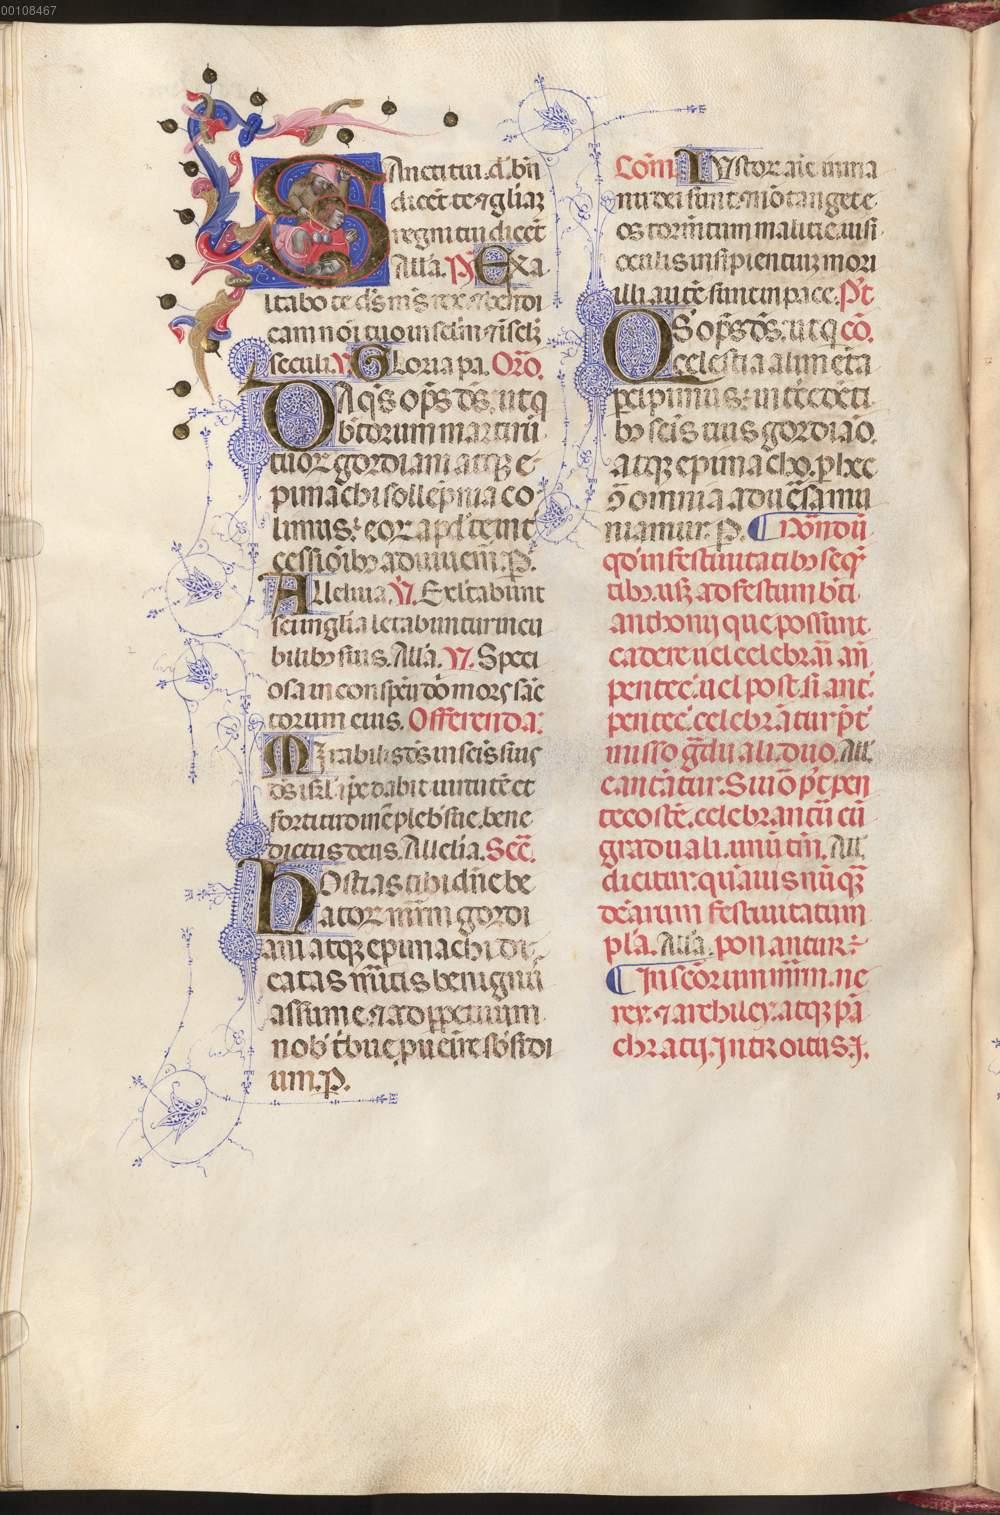 00108467
Sancti tui. d. bn̄
dicēt te ⁊ gl̄iaꝫ
regni tui dicēt
All̄a. Pˢ. Exa
ltabo te dˢ mˢ rex. ⁊ bn̄di
cam nōi tuo in sclm̄ ⁊ ī sclꝫ
seculi. V. Gloria pa. Oro.
Da qˢ op̄s dˢ. ut q
btōrum martirū
tuoꝝ gordiani atqꝫ e-
pimachi sollēpnia co
limus. eoꝝ apd te int̄
cessiōibꝫ adiuuem̄. P.
Alleluia. V. Exl̄tabunt
sc̄i in gl̄ia letabuntur in cu
bilibꝫ suis. All̄a. V. Speci
osa in conspeū dō mors sāc
torum eius. Offerenda:
Mirabilis dˢ in scīs suis
dˢ isrl̄. ip̄e dabit uirtutē et
fortitudinē plebi sue. bene
dictus deus. Allelia. Secᷓ.
Hostias tibi dn̄e be
atoꝝ mr̄m gordi
ani atqꝫ epimachi di-
catas mr̄itis benignꝰ
assume. ⁊ ad ꝑpetuum
nob̄ t̄bue. ꝓueīre sb̄sidi
um. P.
Com̄. Iustoꝝ aīe in ma
nu dei sunt. ⁊ nō tanget e
os torm̄tum malitie. uisi
oculis insipientium mori
illi autē sunt in pace. P̄t
QS op̄s dˢ. ut q cō.
celestia alimēta
ꝑcipimus. intēcdēti
bꝫ scīs tuis gordiāo.
atqꝫ epimacho. ꝑ hec
ɔ̄ omnia aduēsa mu
niamur. P. Notandū
qd in festiuitatibꝫ seqᷓ
tibꝫ. usqꝫ ad festum bt̄i
anthonii que possunt
cadere uel celebrāi añ
pentec̄. uel post. si ant̄.
pentec̄. celebrātur p̄t
misso gᷓduali. duo. All̄.
cantātur. Si uō p̄t pen
tecostē. celebrantᷓ cū
graduali. unū tm̄. All̄.
dicitur. qᷓuis nūqꝫ
dc̄arum festiuitatum
pl̄a. All̄a. ponantur:
In scōrum mr̄m. ne
rei. ⁊ archilei. atqꝫ pā
chratii. Introitus. I.